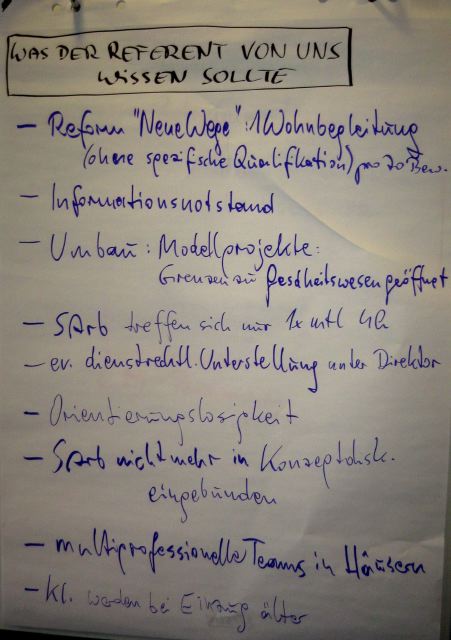 WAS DER REFERENT VON UNS
WISSEN SOLLTE
– Reform "Neue Wege": 1 Wohnbegleitung
(ohne spezifische Qualifikation) pro 20 Bew.
– Informationsnotstand
– Umbau: Modellprojekte:
Grenzen zu Gesdheitswesen geöffnet
– SArb treffen sich nur 1x mtl 4h
– ev. dienstrechtl. Unterstellung unter Direktor
– Orientierungslosigkeit
– SArb nicht mehr in Konzeptdisk.
eingebunden
– multiprofessionelle Teams in Häusern
– Kl. werden bei Einzug älter